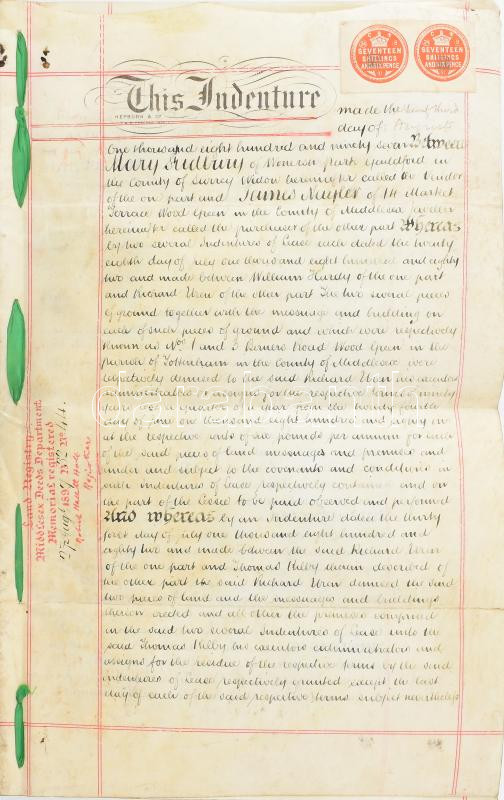 SEVENTEEN
SHILLINGS
AND SIXPENCE
SEVENTEEN
SHILLINGS
AND SIXPENCE
This Indenture
HEPBURN & Co
made the
day of August
One thousand eight hundred and ninety seven Between
Mary of park Guildford in
the County of Surrey Widow hereinafter called the Vendor
of the one part and James of 14 Market
Terrace Wood Green in the County of Middlesex
hereinafter called the purchaser of the other part Whereas
by two several Indentures of Lease each dated the twenty
eighth day of July one thousand eight hundred and eighty
two and made between William Hardy of the one part
and Richard Uren of the other part The two several pieces
of ground together with the messuage and building on
each of such pieces of ground and which were respectively
known as Nos 1 and 3 Barners Road Wood Green in the
parish of Tottenham in the County of Middlesex were
respectively demised to the said Richard Uren his executors
administrators or assigns for the respective terms of ninety
years a quarter of a year from the twenty fourth
day of June one thousand eight hundred and eighty
at the respective rents of six pounds per annum for each
of the said pieces of land messuages and premises and
under and subject to the covenants and conditions in
such indentures of lease respectively contained and on
the part of the lessee to be paid observed and performed
And whereas by an Indenture dated the thirty
first day of July one thousand eight hundred and
eighty two and made between the said Richard Uren
of the one part and Thomas Kilby therein described of
the other part the said Richard Uren demised the said
two pieces of land and the messuages and buildings
thereon erected and all other the premises comprised
in the said two several Indentures of Lease unto the
said Thomas Kilby his executors administrators and
assigns for the residue of the respective terms by the said
indentures of lease respectively granted except the last
day of each of the said respective terms subject nevertheless
Land Registry
Middlesex Deeds Department
Memorial registered
27 Augt 1897 No
Registrar